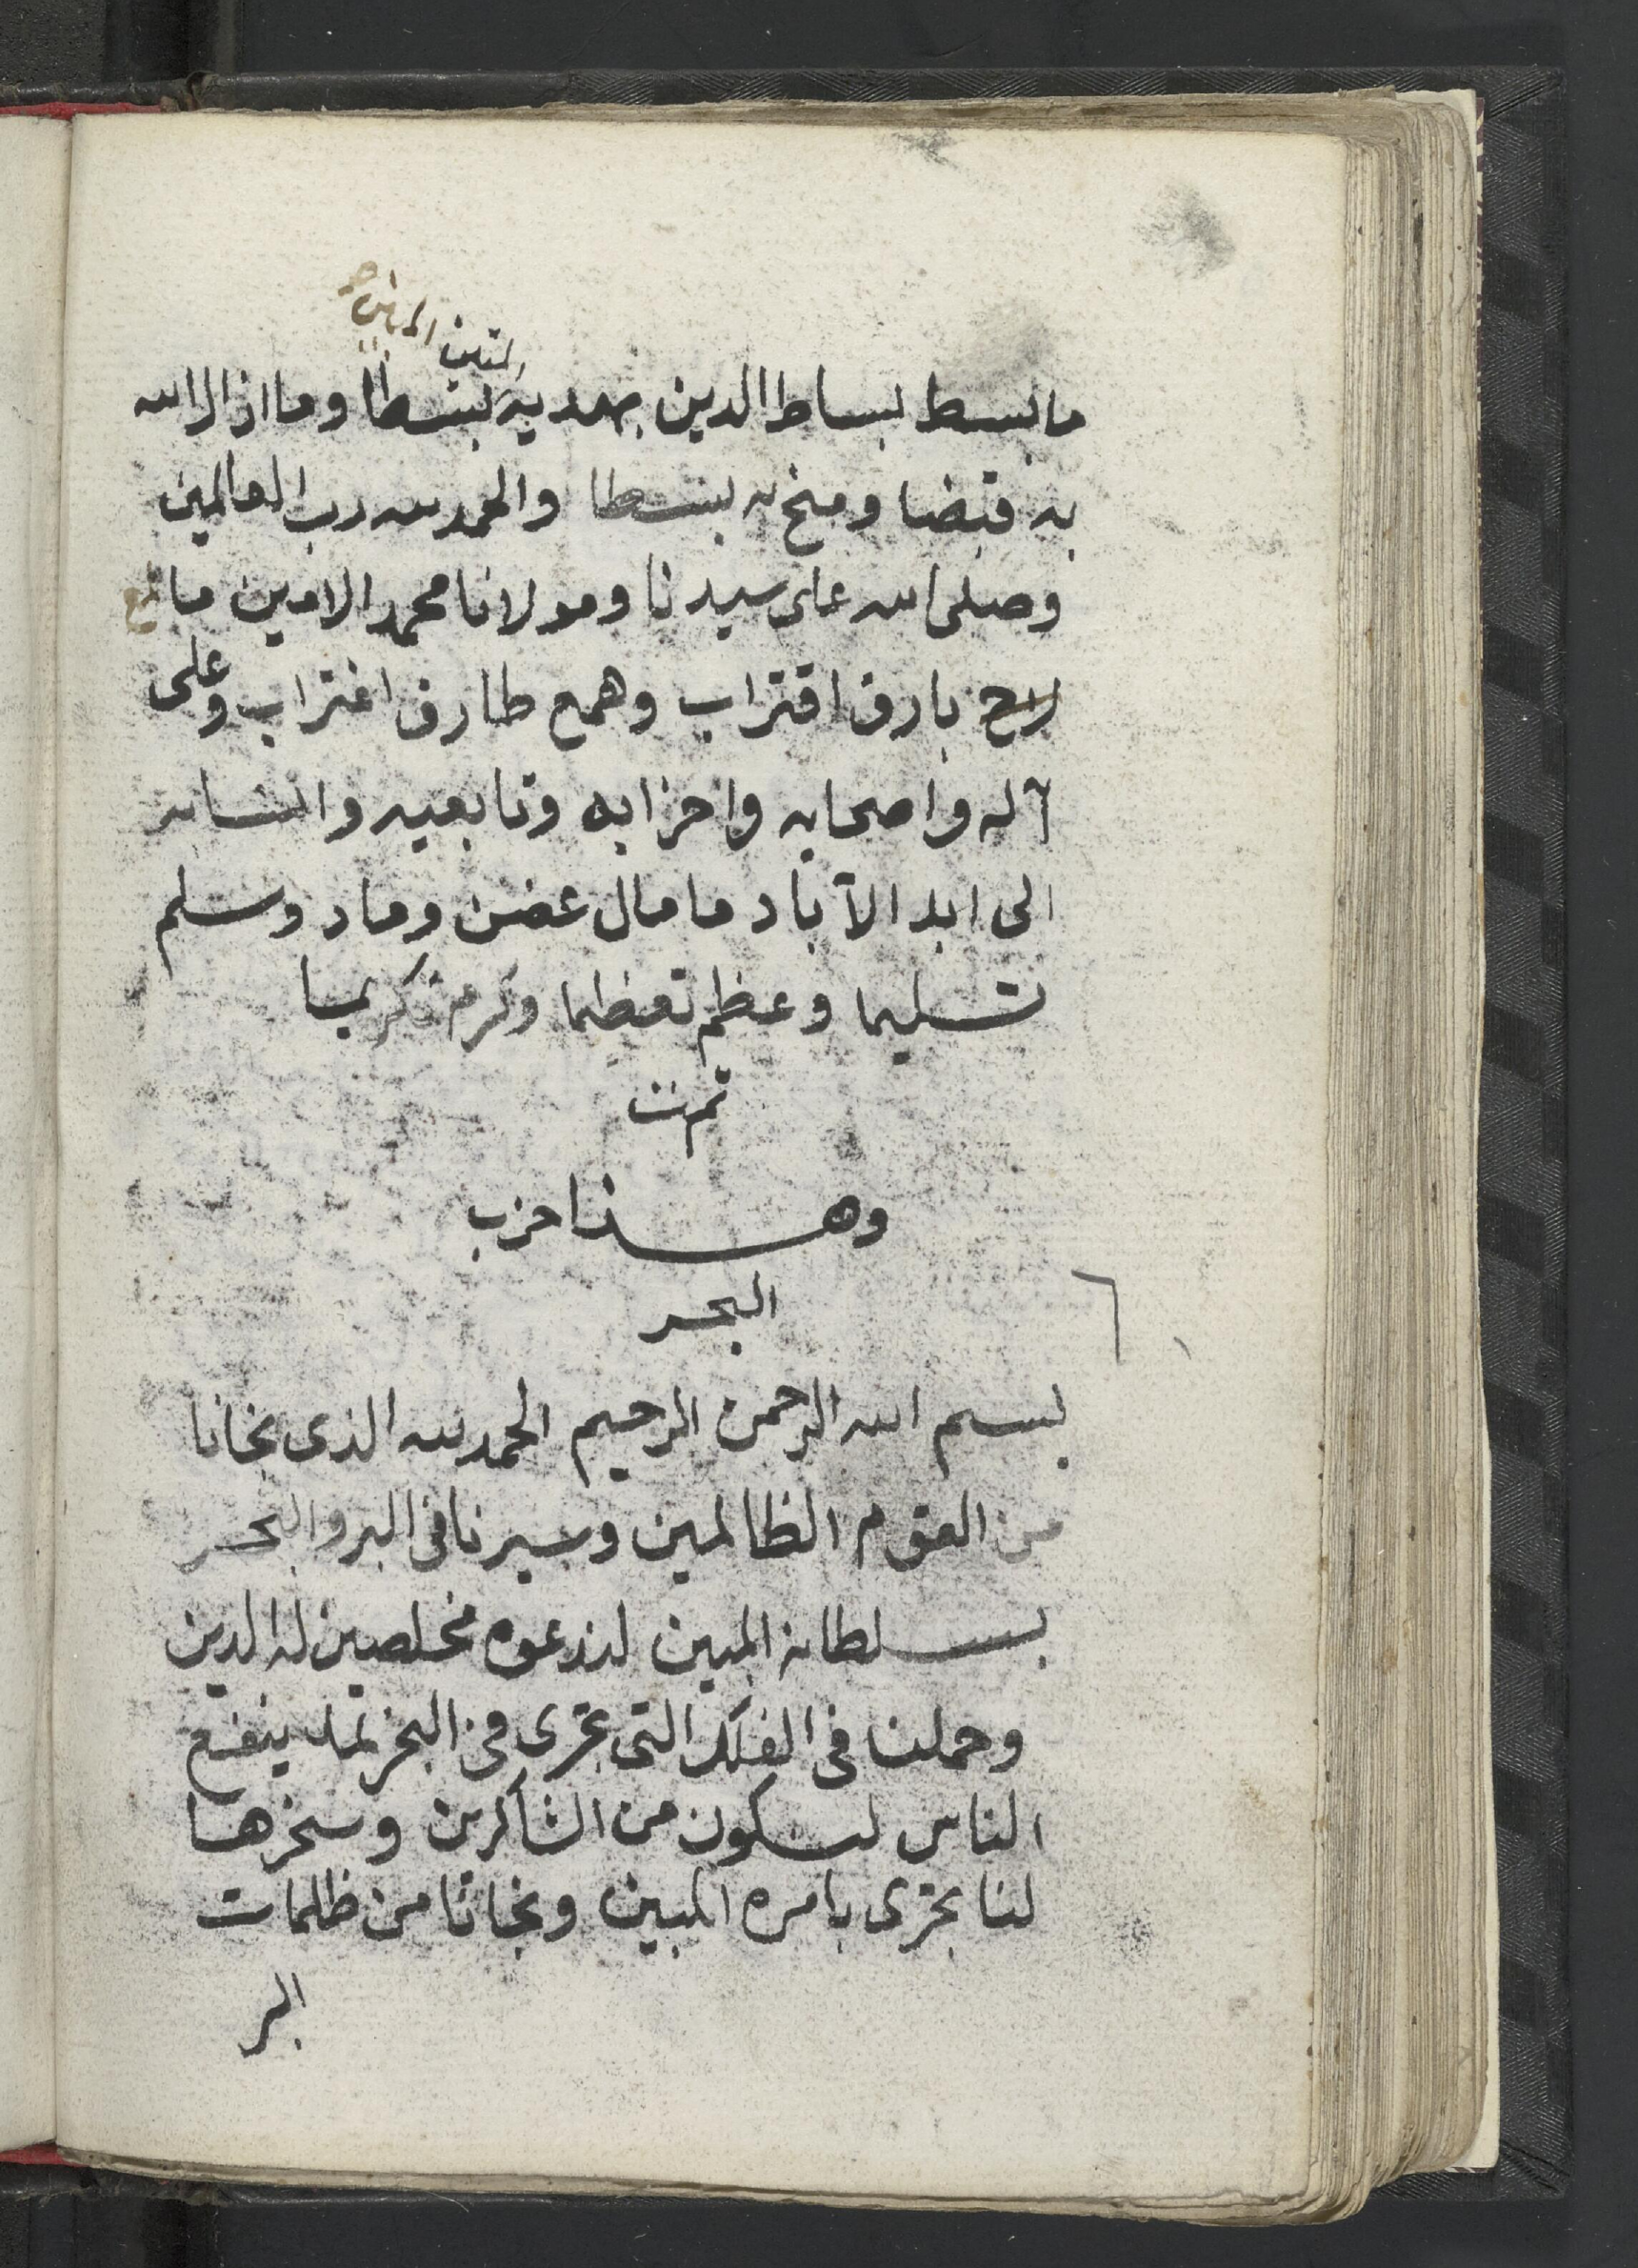 المتين
ما بسط بساط الدين بهديه بسطا وما ازال الله
به قبضا ومنح به بسطا والحمد لله رب العالمين
وصلى الله على سيدنا ومولانا محمد الامين ما
لاح بارق اقتراب وهمع طارق اغتراب وعلى
آله واصحابه واحزابه وتابعيه
الى ابد الآباد ما مال غصن وماد وسلم
تسليما وعظم تعظيما وكرم تكريما
تمت
وهذا حزب
البحر
٦
بسم الله الرحمن الرحيم الحمد لله الذى نجانا
من القوم الظالمين وسيرنا فى البر والبحر
بسلطانه المبين لندعوه مخلصين له الدين
وحملنا فى الفلك التى تجرى فى البحر بما ينفع
الناس لنكون من الشاكرين وسخرها
لنا تجرى بامره المبين ونجانا من ظلمات
البر